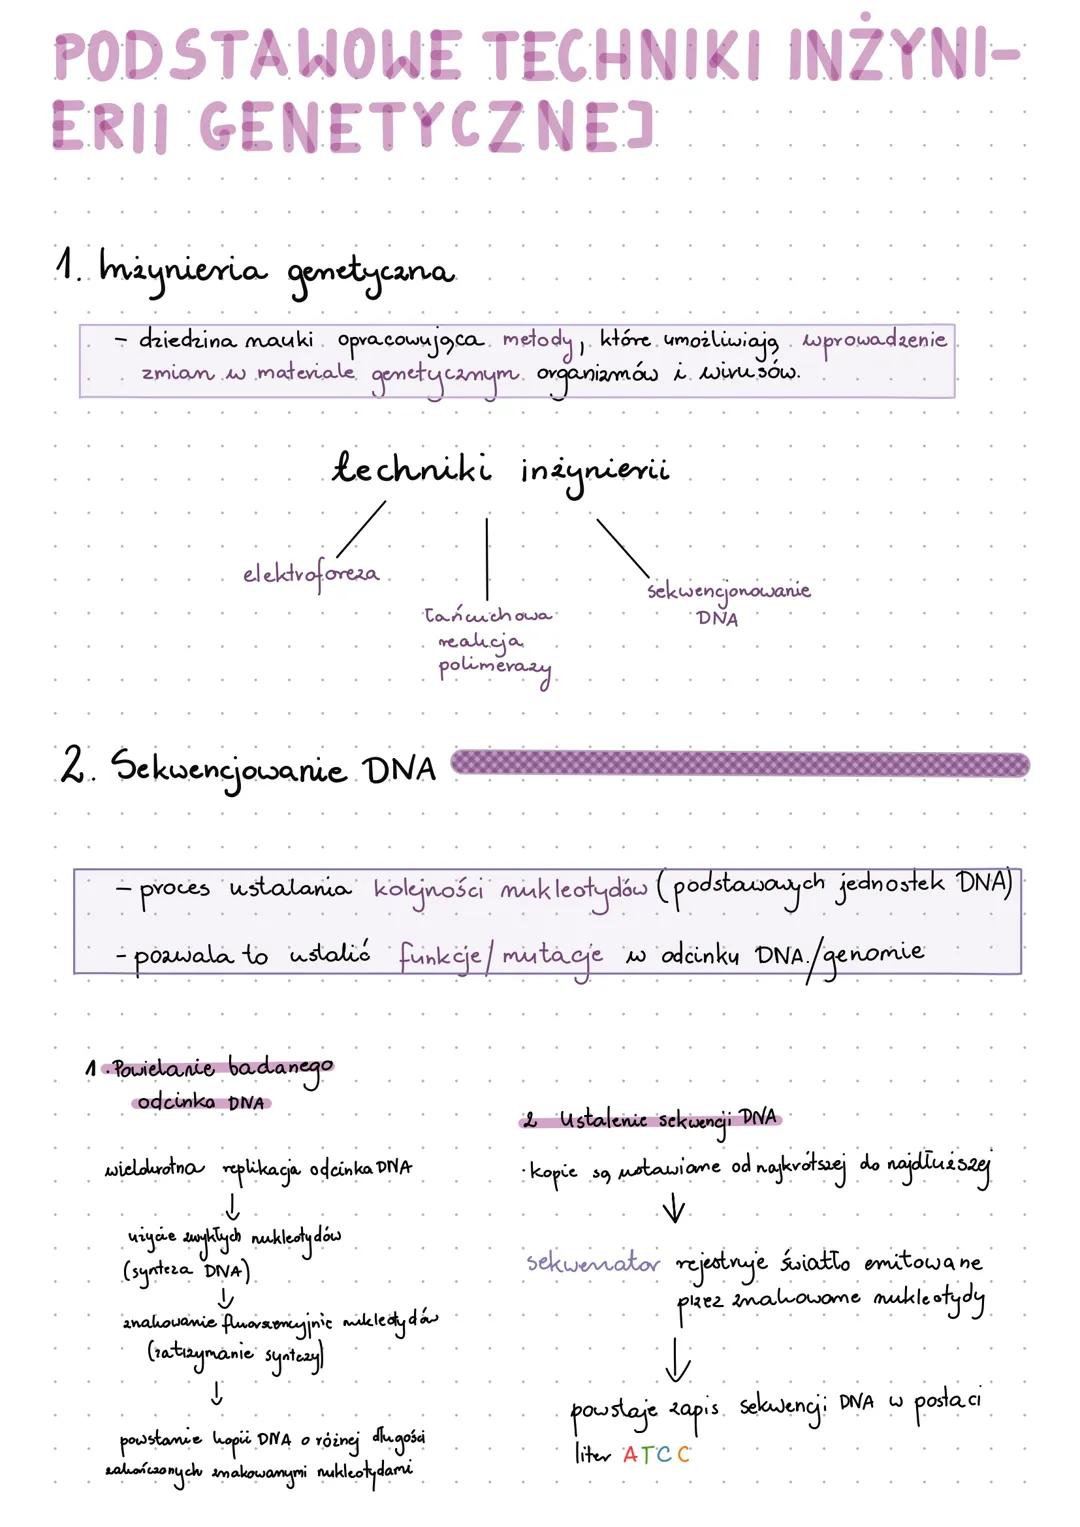 PODSTAWOWE TECHNIKI INŻYNI-
ERII GENETYCZNEJ
1. Inżynieria genetyczna
- dziedzina nauki opracowująca metody, które umożliwiają wprowadzenie
zmian w materiale genetycznym organizmów i wirusów.
techniki inżynierii
elektroforeza
łańcuchowa
reakcja
polimerazy
sekwencjonowanie
DNA
2. Sekwencjowanie DNA
- proces ustalania kolejności nukleotydów (podstawowych jednostek DNA)
- pozwala to ustalić funkcje/mutacje w odcinku DNA/genomie
1. Powielanie badanego
odcinka DNA
wielokrotna replikacja odcinka DNA
↓
użycie zwykłych nukleotydów
(synteza DNA)
↓
znakowanie fluorscencyjnie nukleotydów
(zatrzymanie syntezy)
↓
powstanie kopii DNA o różnej długości
zakończonych znakowanymi nukleotydami
2 Ustalenie sekwencji DNA
· kopie są ustawiane od najkrótszej do najdłuższej
↓
sekwenator rejestruje światło emitowane
przez znakowane nukleotydy
↓
powstaje zapis sekwencji DNA w postaci
liter ATCC